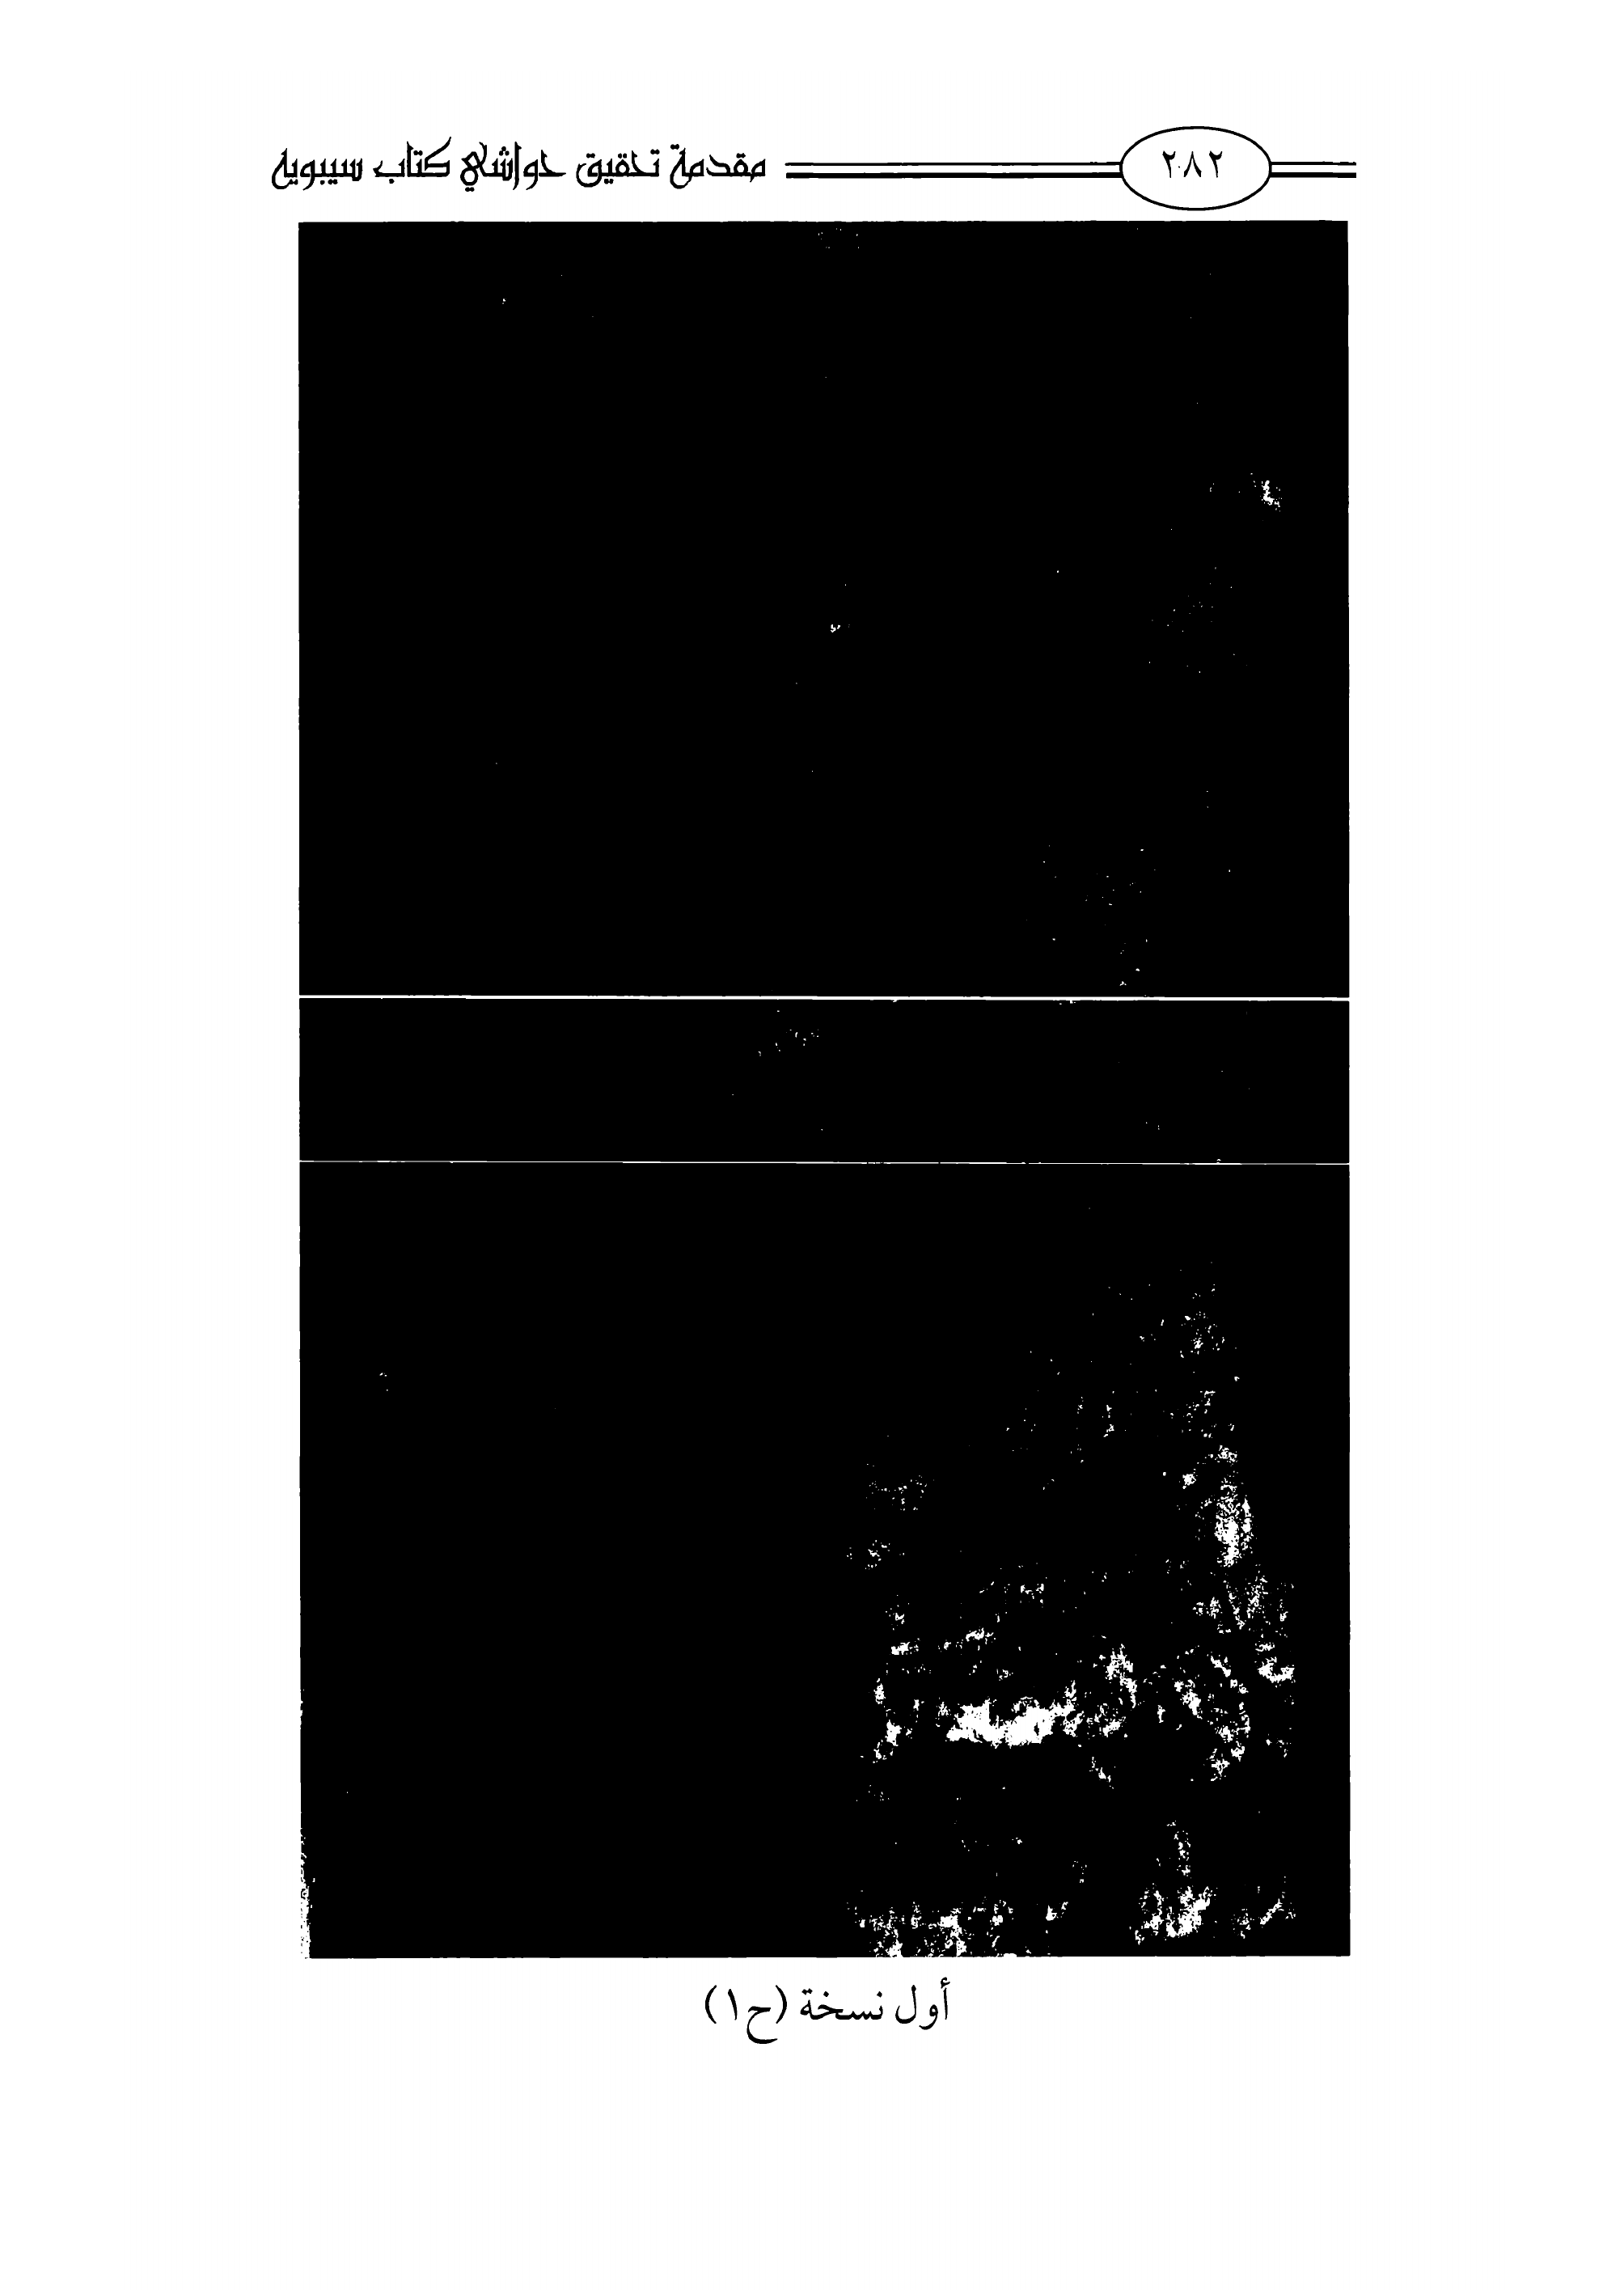 ٢٨٢ مقدمة تحقيق حواشي كتاب سيبويه
أول نسخة (ح١)